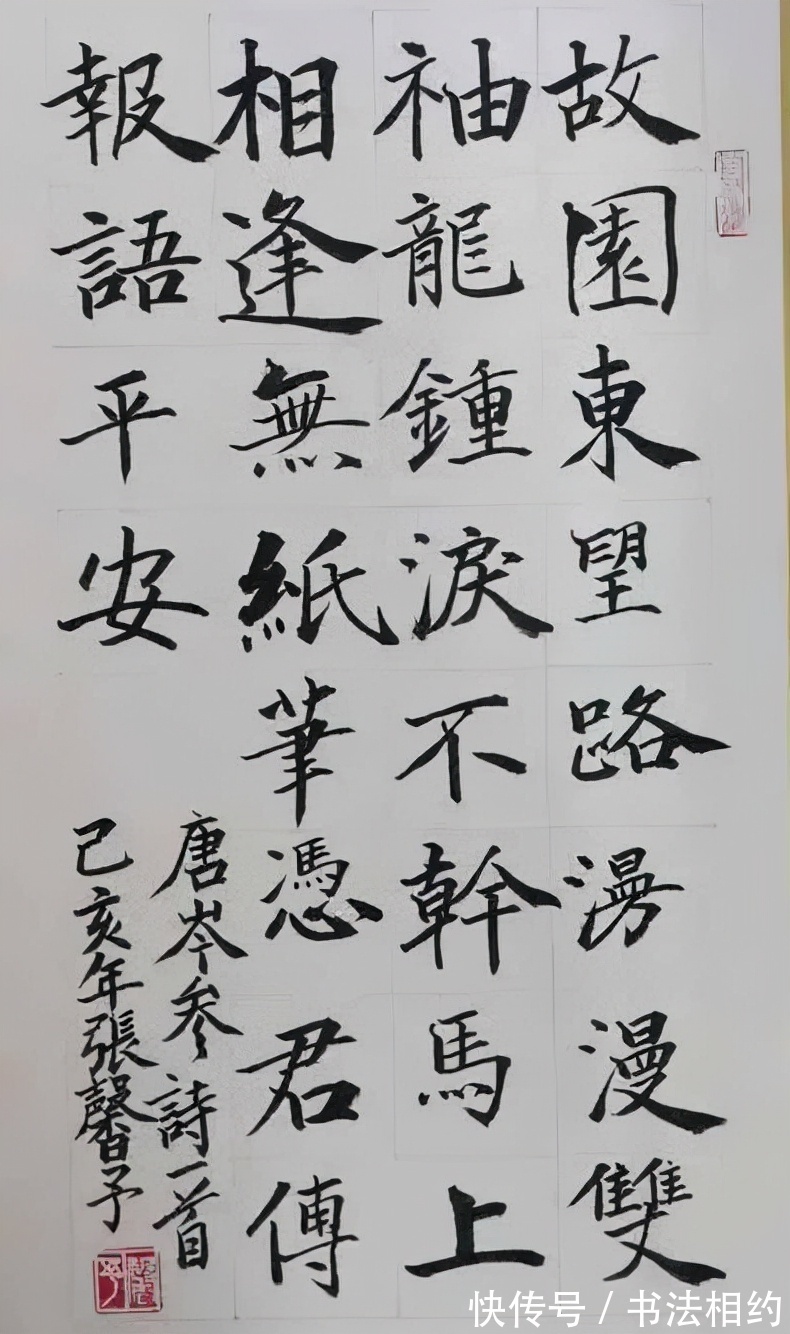 故園東望路漫漫雙
袖龍鍾淚不幹馬上
相逢無紙筆憑君傳
報語平安
唐岑參詩一首
己亥年張馨予
快传号 / 书法相约